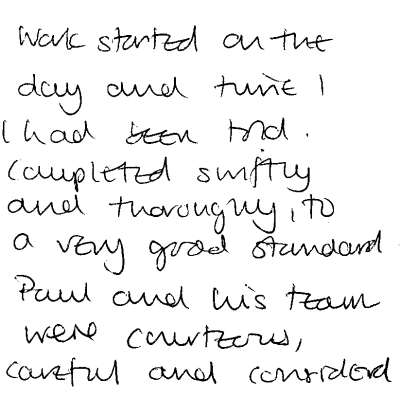 Work started on the
day and time I
I had been told.
Completed swiftly
and thoroughly, to
a very good standard.
Paul and his team
were courteous,
careful and considerd